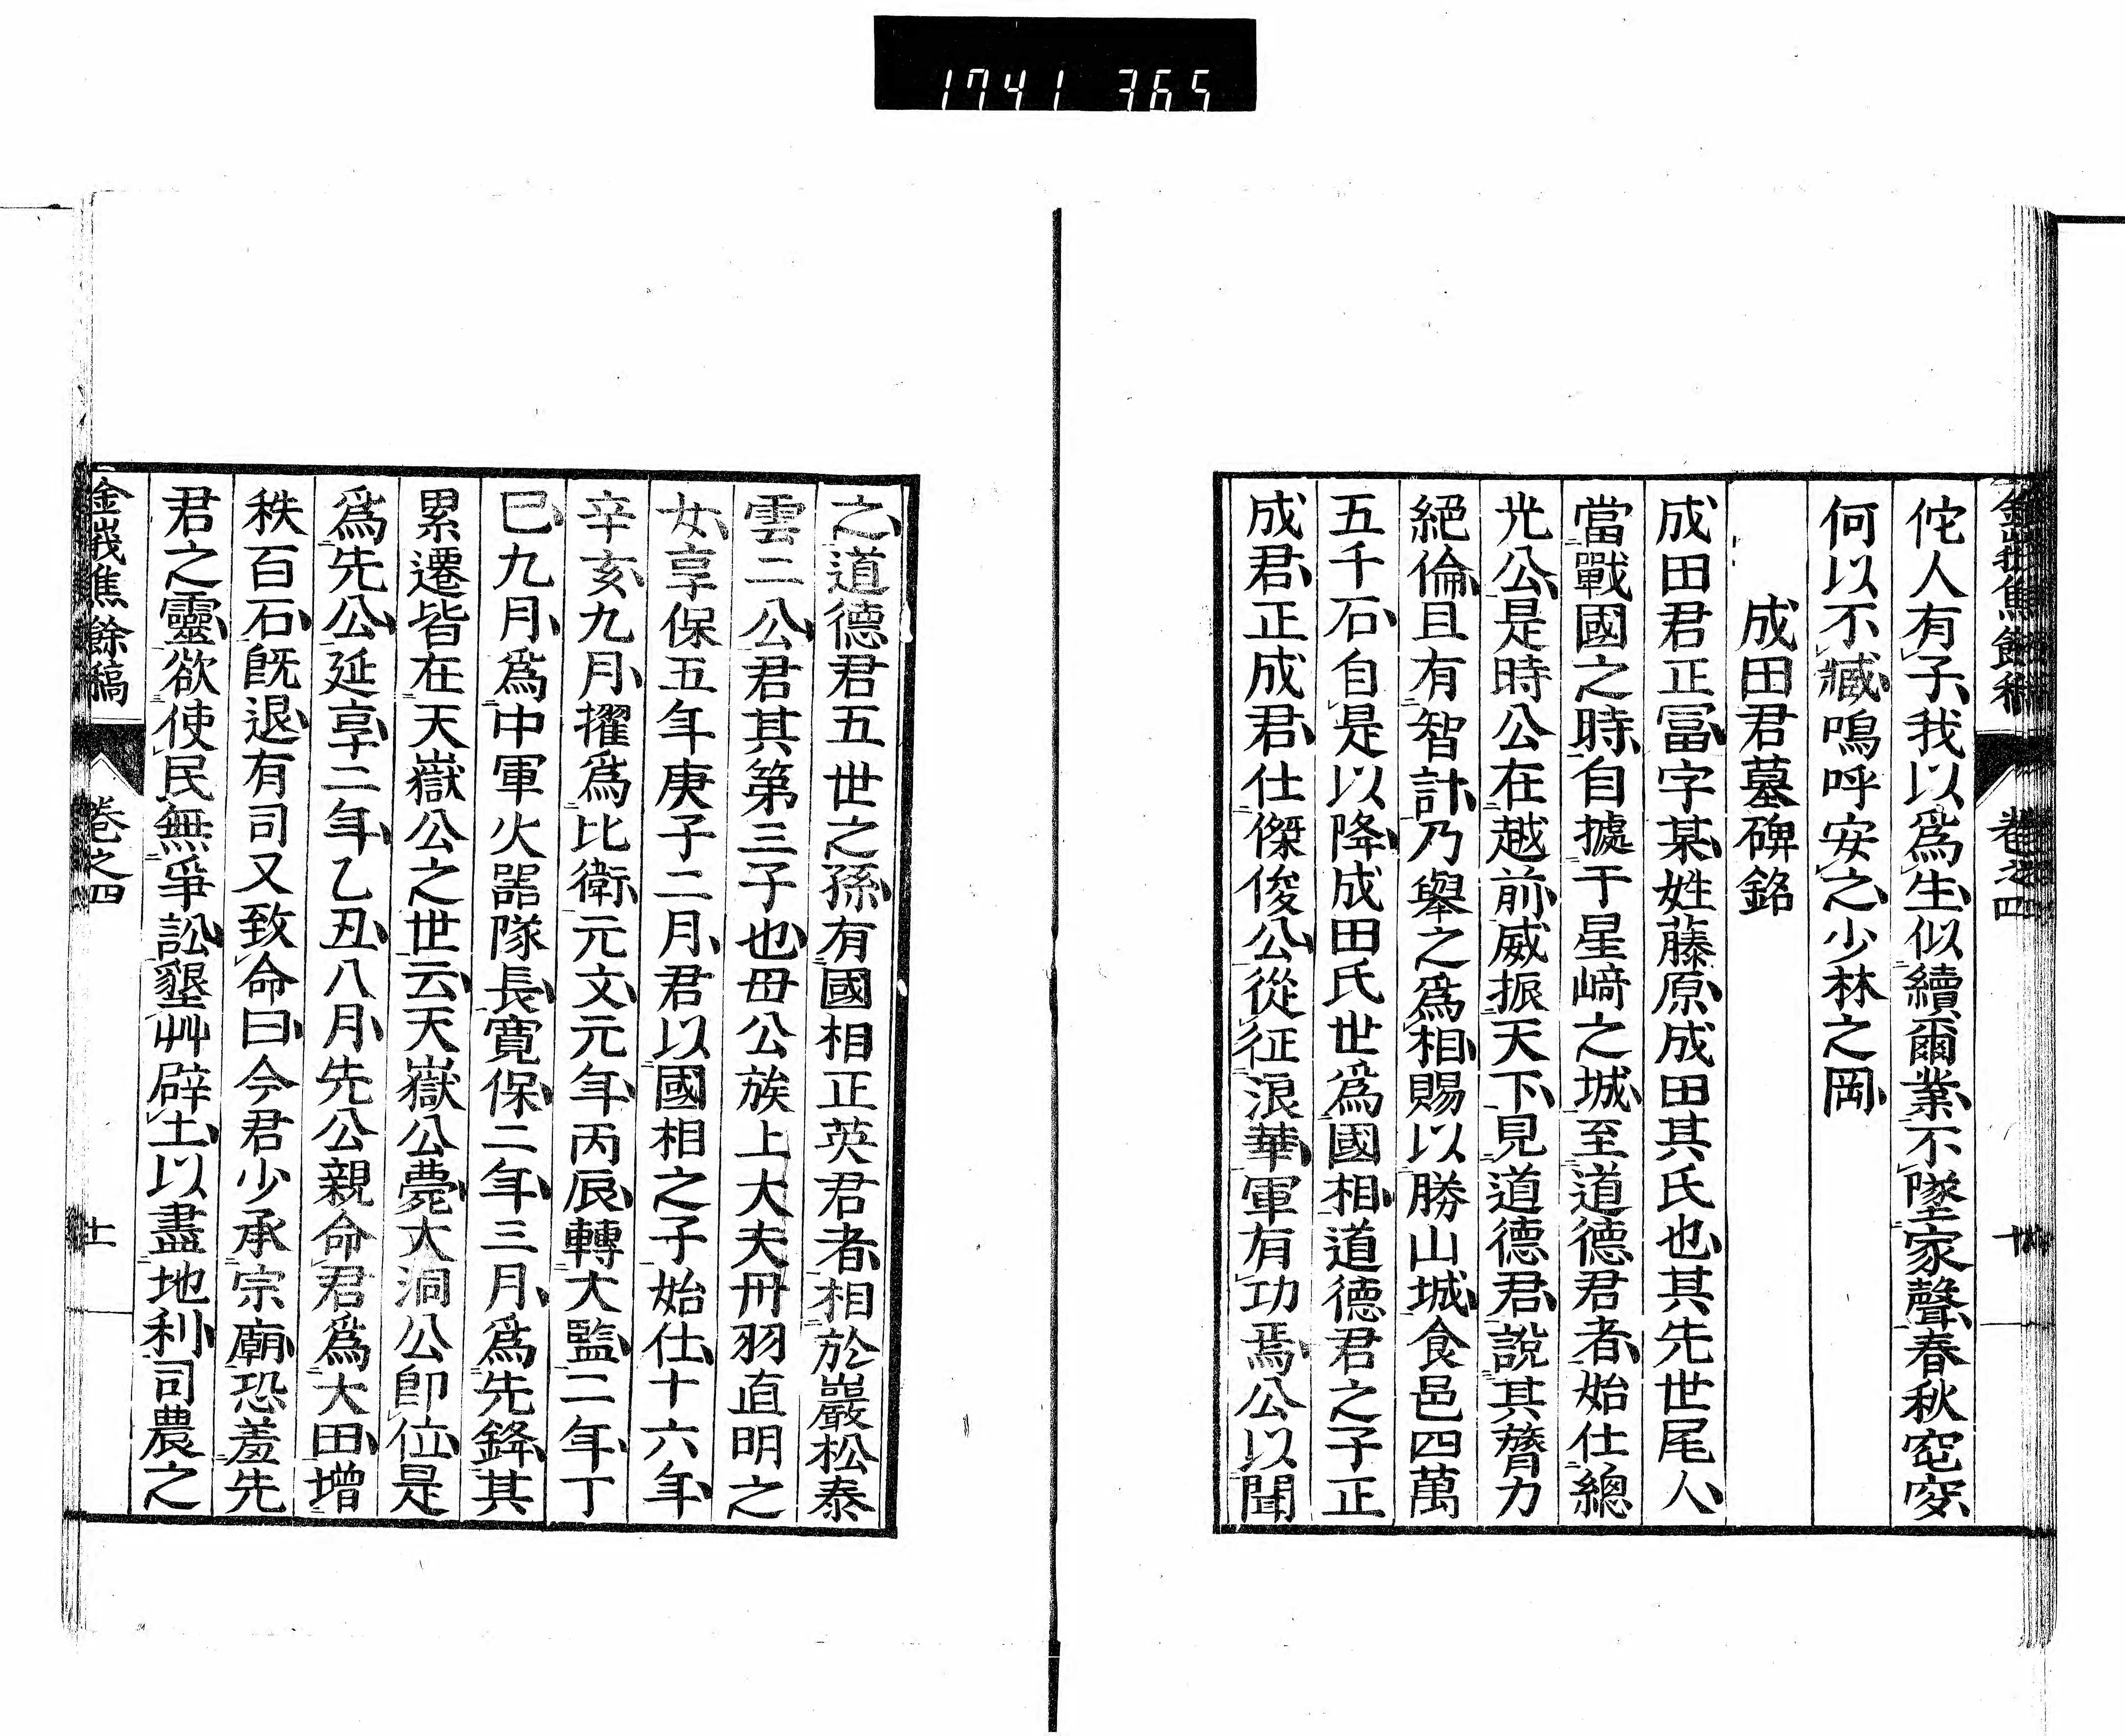 1741 365
佗人有子、我以爲生、似續爾業、不墜家聲、春秋窀穸、
何以不臧、嗚呼安之、少林之岡、
成田君墓碑銘
成田君正冨、字某、姓藤原、成田其氏也、其先世尾人、
當戰國之時、自據于星﨑之城、至道德君者、始仕總
光公、是時公在越前、威振天下、見道德君、說其膂力
絕倫、且有智計、乃舉之爲相、賜以勝山城、食邑四萬
五千石、自是以降、成田氏世爲國相、道德君之子正
成君、正成君、仕傑俊公、從征浪華、軍有功焉、公以聞
之、道德君五世之孫、有國相正英君者、相於巖松泰
雲二公、君其第三子也、母公族上大夫丹羽直明之
女、享保五年庚子二月、君以國相之子始仕、十六年、
辛亥九月、擢爲比衛、元文元年、丙辰、轉大監、二年、丁
巳九月、爲中軍火器隊長、寬保二年、三月、爲先鋒、其
累遷皆在天嶽公之世云、天嶽公薨、大洞公卽位、是
爲先公、延享二年、乙丑、八月、先公親命君爲大田、增
秩百石、旣退、有司又致命曰、今君少承宗廟、恐羞先
君之靈、欲使民無爭訟、墾艸辟土、以盡地利、司農之
金峩焦餘稿 卷之四 十一